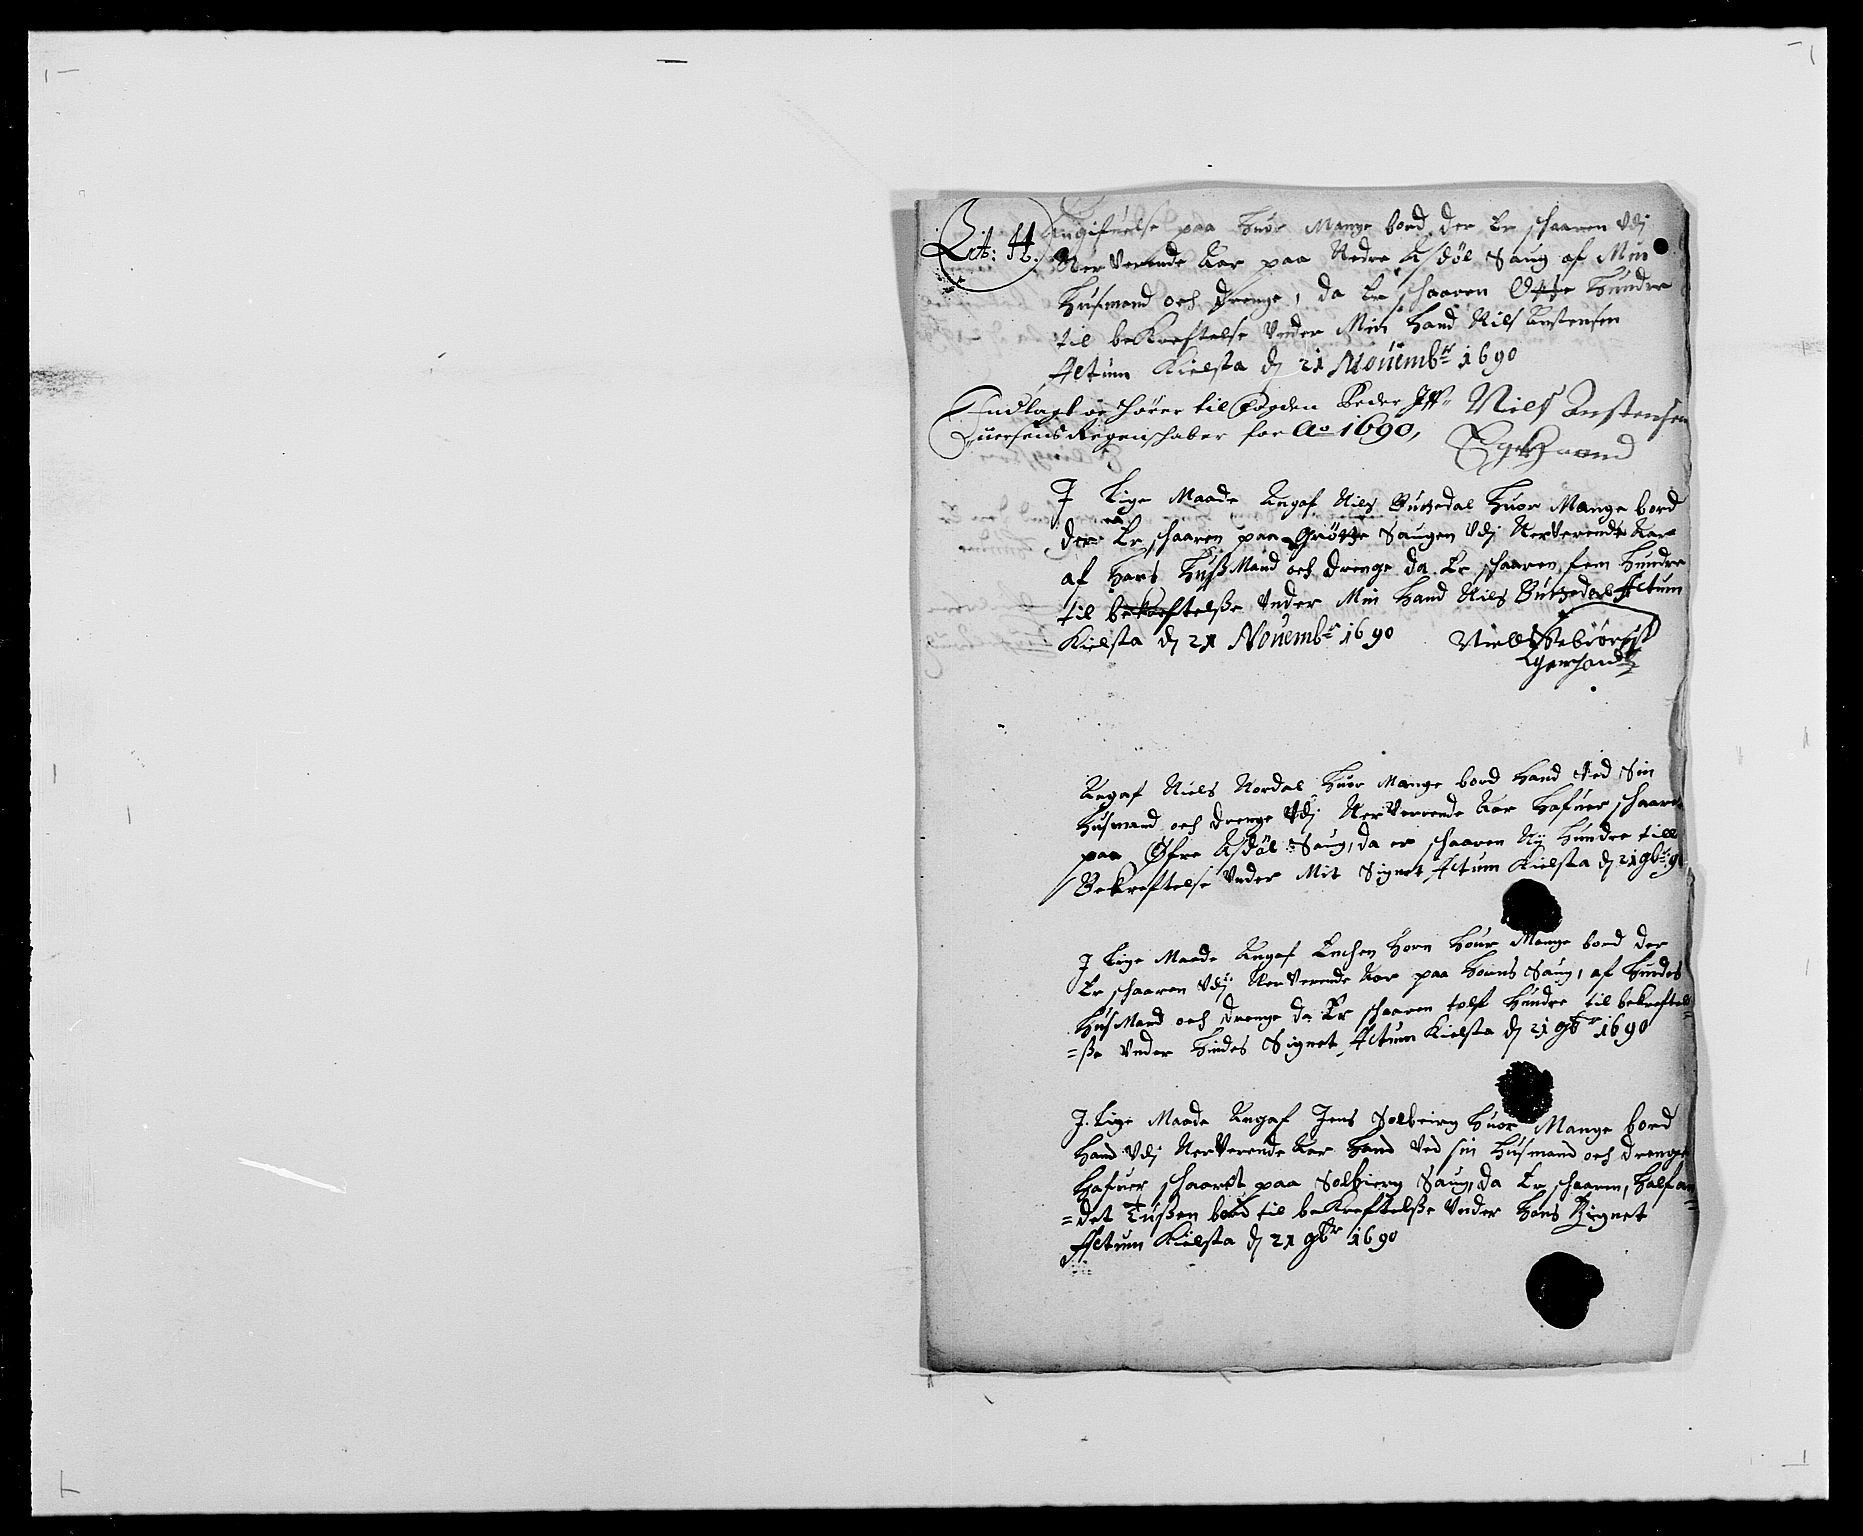 Lit: H.
Angifuelse paa huor Mange bord der Er schaaren Udj
Nerverende Aar paa Nedre Asdøl Saug af Min
Husmand och drenge, da Er schaaren Otte hundre
til bekreftelse Under Min Hand Nils Anstensen
Actum Kielsta dj 21 Nouembr 1690
Indlagt og hører til fogden Peder
Juersens Regenschaber for Ao 1690,
Niels Anstensen
Egehaand
J Lige Maade Angaf Nils Butzedal huor Mange bord
der Er schaaren paa Grøtte Saugen Udj Nerverende Aar
af hans HusMand och drenge da Er schaaren fem hundre
til bekreftelsse Under Min Hand Nils Butzedal Actum
Kielsta dj 21 Nouembr 1690
Niells
Egenhand
Angaf Niels Nordal huor Mange bord Hand Ved Sin
Husmand och drenge Udj Nerverende Aar Hafuer schaaren
paa Øfre Asdøl Saug, da er schaaren Nij Hundre till
Bekreftelse Under Mit Signet Actum Kielsta dj 21 9br 90
J Lige Maade Angaf Enchen Horn Huor Mange bord der
Er schaaren Udj Nerverende Aar paa Horns Saug, af Hendes
HusMand och drenge da Er schaaren tolf Hundre til bekreftel=
=sse Under Hindes Signet Actum Kielsta dj 21 9br 1690
J Lige Maade Angaf Jens Solbeirg Huor Mange bord
Hand Udj Nerverende Aar Hand Ved sin Husmand och drenge
Hafuer schaaret paa Solbierg Saug, da Er schaaren, Half an=
=det Tussen bord til bekreftelsse Under Hans Signet
Actum Kielsta dj 21 9br 1690